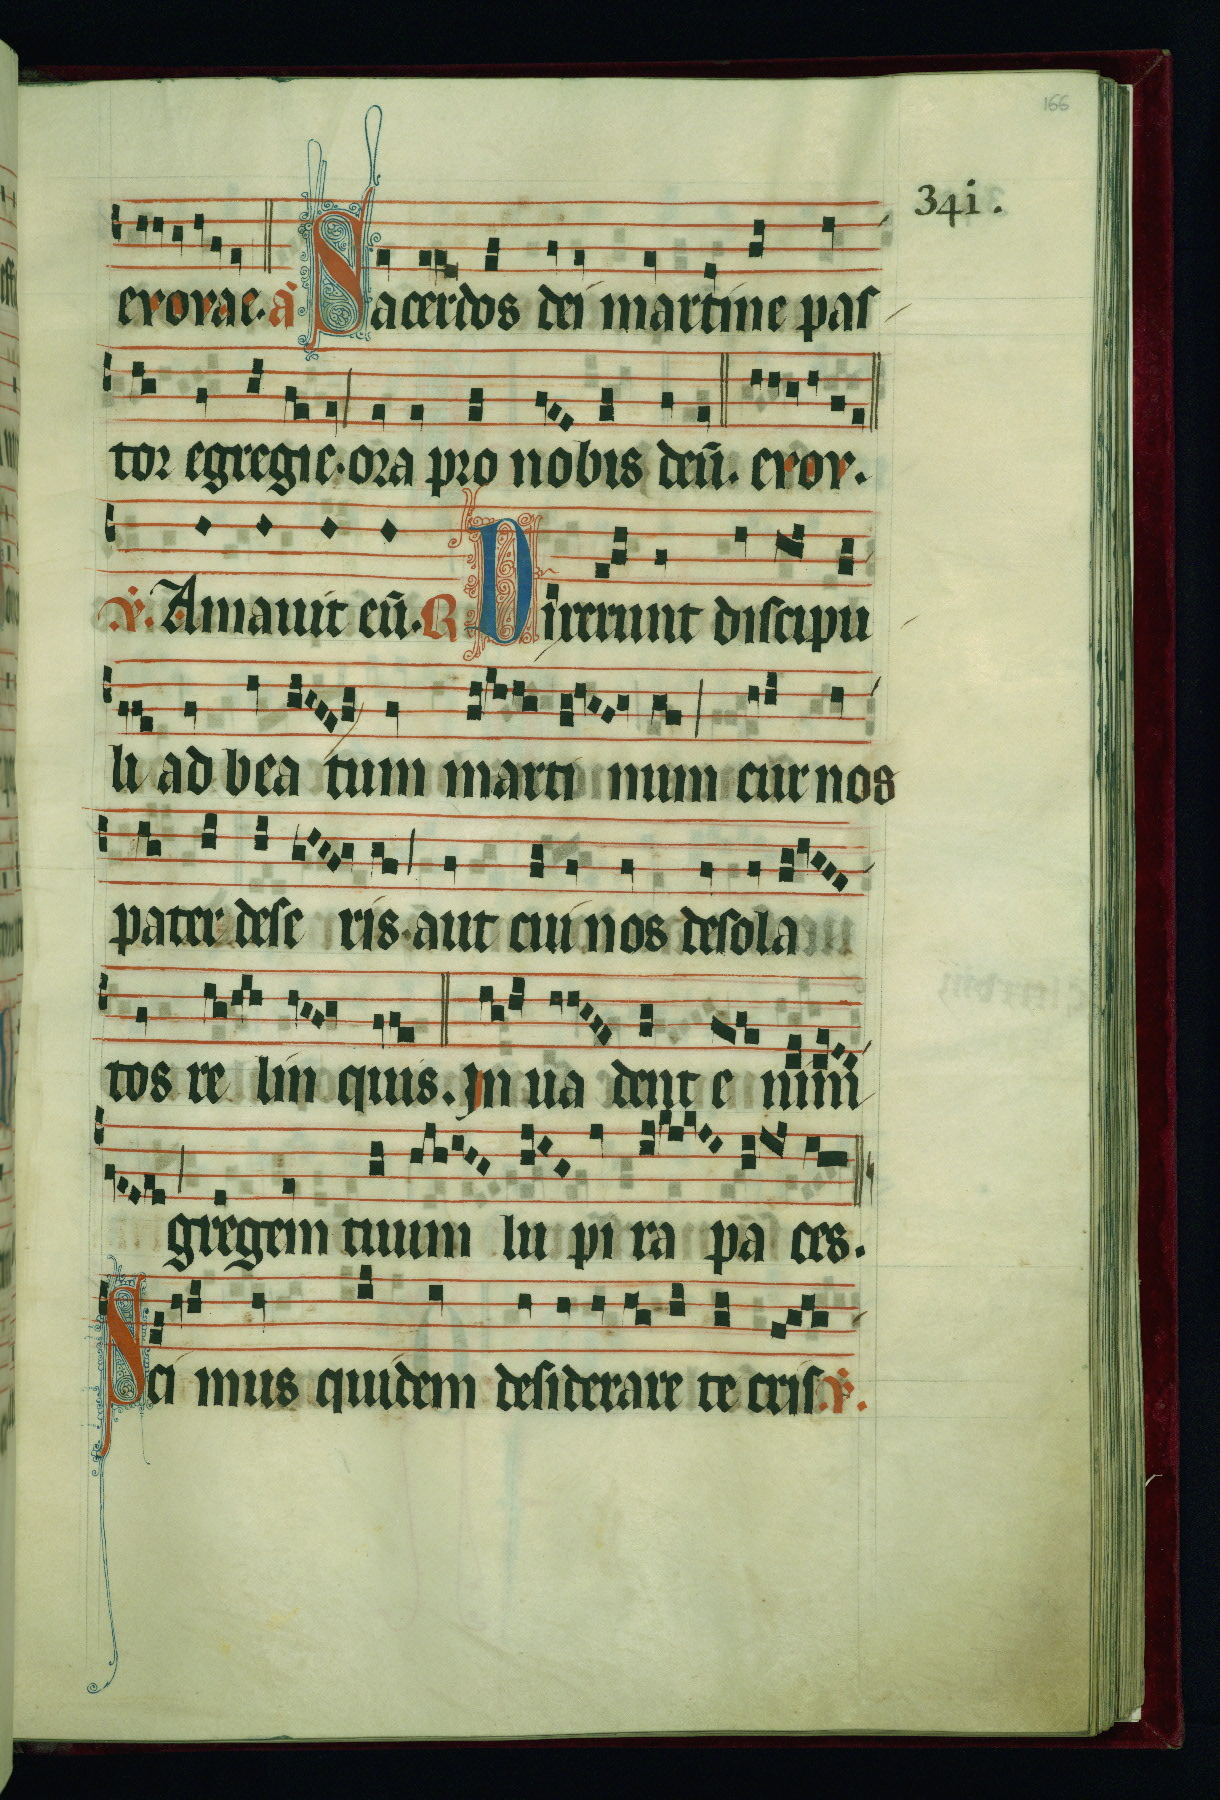 166
34i.
evovae. a Sacerdos dei martine pas
tor egregie. ora pro nobis deū. evov.
℣. Amauit eū. R Dixerunt discipu
li ad bea tum marti num cur nos
pater dese ris. aut cui nos desola
tos re lin quis. In ua dent e nim
gregem tuum lu pi ra pa ces.
Sci mus quidem desiderare te cris. ℣.